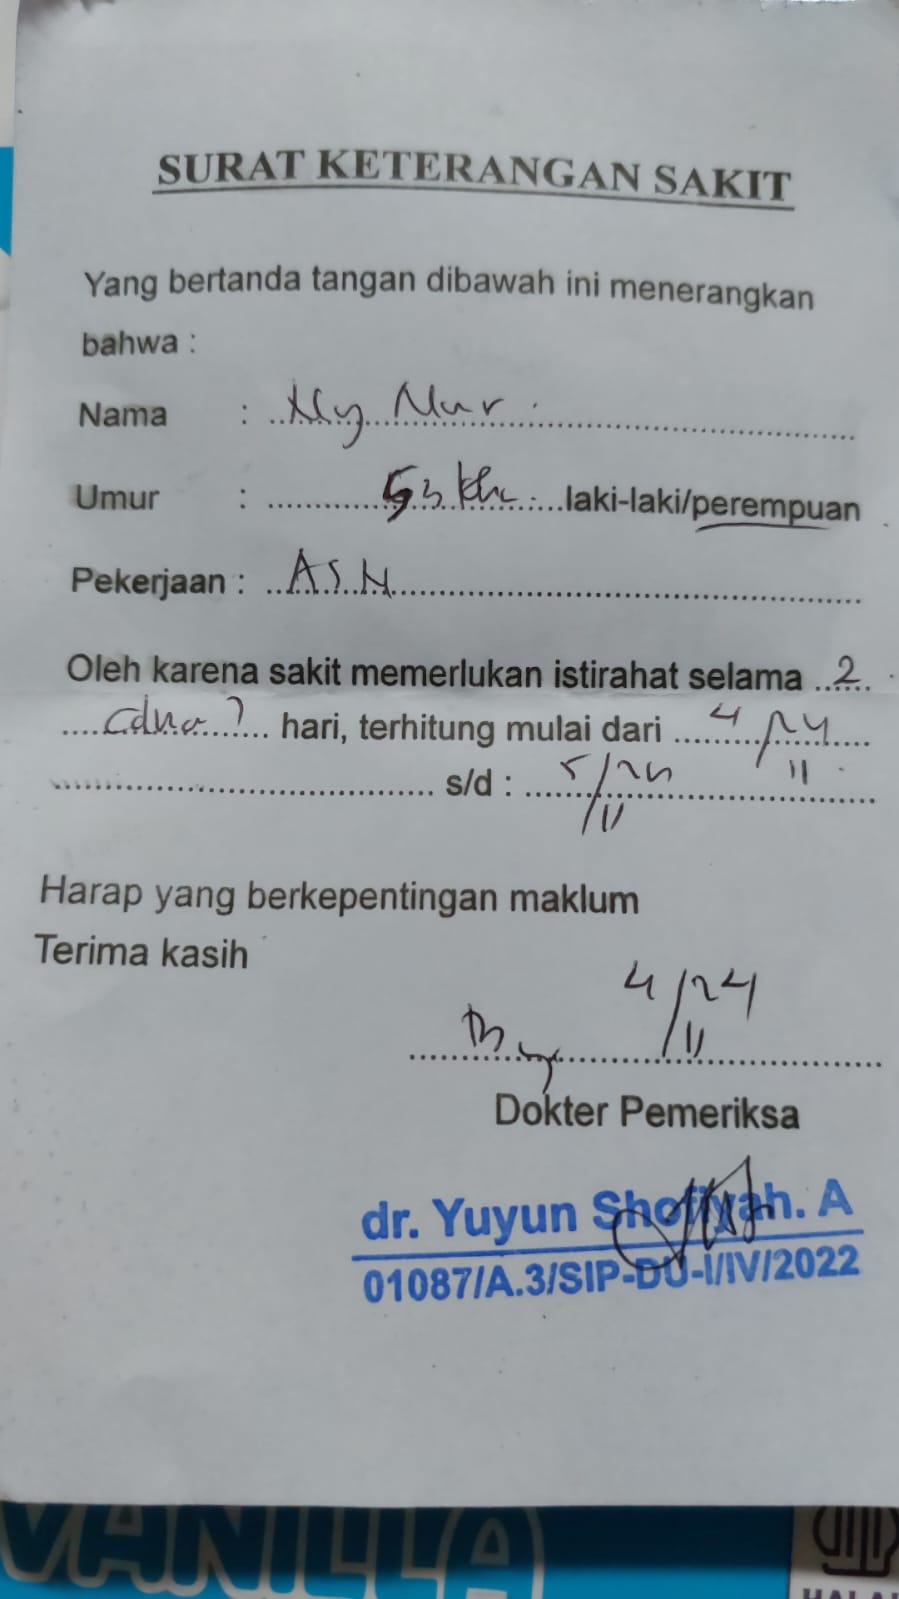 SURAT KETERANGAN SAKIT
Yang bertanda tangan dibawah ini menerangkan
bahwa :
Nama : Ny Nur
Umur : 53 thn laki-laki/perempuan
Pekerjaan : ASN
Oleh karena sakit memerlukan istirahat selama 2
(dua) hari, terhitung mulai dari 4/11 24
s/d : 5/11 24
Harap yang berkepentingan maklum
Terima kasih
4/11 24
Dokter Pemeriksa
dr. Yuyun Shofiyah. A
01087/A.3/SIP-DU-I/IV/2022
VANILLA
HALAL